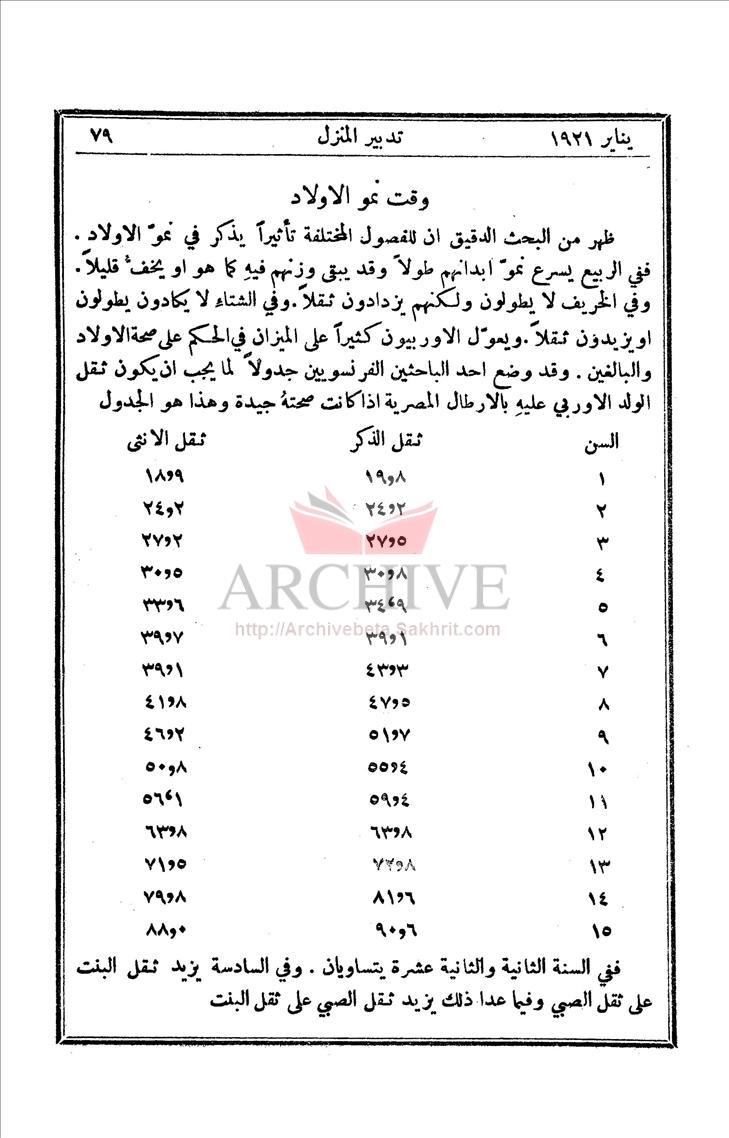 يناير ١٩٢١ تدبير المنزل ٧٩
وقت نمو الاولاد
ظهر من البحث الدقيق ان للفصول المختلفة تأثيراً يذكر في نموّ الاولاد .
ففي الربيع يسرع نموّ ابدانهم طولاً وقد يبقى وزنهم فيهِ كما هو او يخفُّ قليلاً .
وفي الخريف لا يطولون ولكنهم يزدادون ثقلاً . وفي الشتاءِ لا يكادون يطولون
او يزيدون ثقلاً . ويعوّل الاوربيون كثيراً على الميزان في الحكم على صحة الاولاد
والبالغين . وقد وضع احد الباحثين الفرنسويين جدولاً لما يجب ان يكون ثقل
الولد الاوربي عليهِ بالارطال المصرية اذا كانت صحتهُ جيدة وهذا هو الجدول
السن ثقل الذكر ثقل الانثى
١ ١٩٫٨ ١٨٫٩
٢ ٢٤٫٢ ٢٤٫٢
٣ ٢٧٫٥ ٢٧٫٢
٤ ٣٠٫٨ ٣٠٫٥
ARCHIVE
٥ ٣٤٫٩ ٣٣٫٦
http://Archivebeta.Sakhrit.com
٦ ٣٩٫١ ٣٩٫٧
٧ ٤٣٫٣ ٣٩٫١
٨ ٤٧٫٥ ٤١٫٨
٩ ٥١٫٧ ٤٦٫٢
١٠ ٥٥٫٤ ٥٠٫٨
١١ ٥٩٫٤ ٥٦٫١
١٢ ٦٣٫٨ ٦٣٫٨
١٣ ٧٢٫٨ ٧١٫٥
١٤ ٨١٫٦ ٧٩٫٨
١٥ ٩٠٫٦ ٨٨٫٠
ففي السنة الثانية والثانية عشرة يتساويان . وفي السادسة يزيد ثقل البنت
على ثقل الصبي وفيما عدا ذلك يزيد ثقل الصبي على ثقل البنت